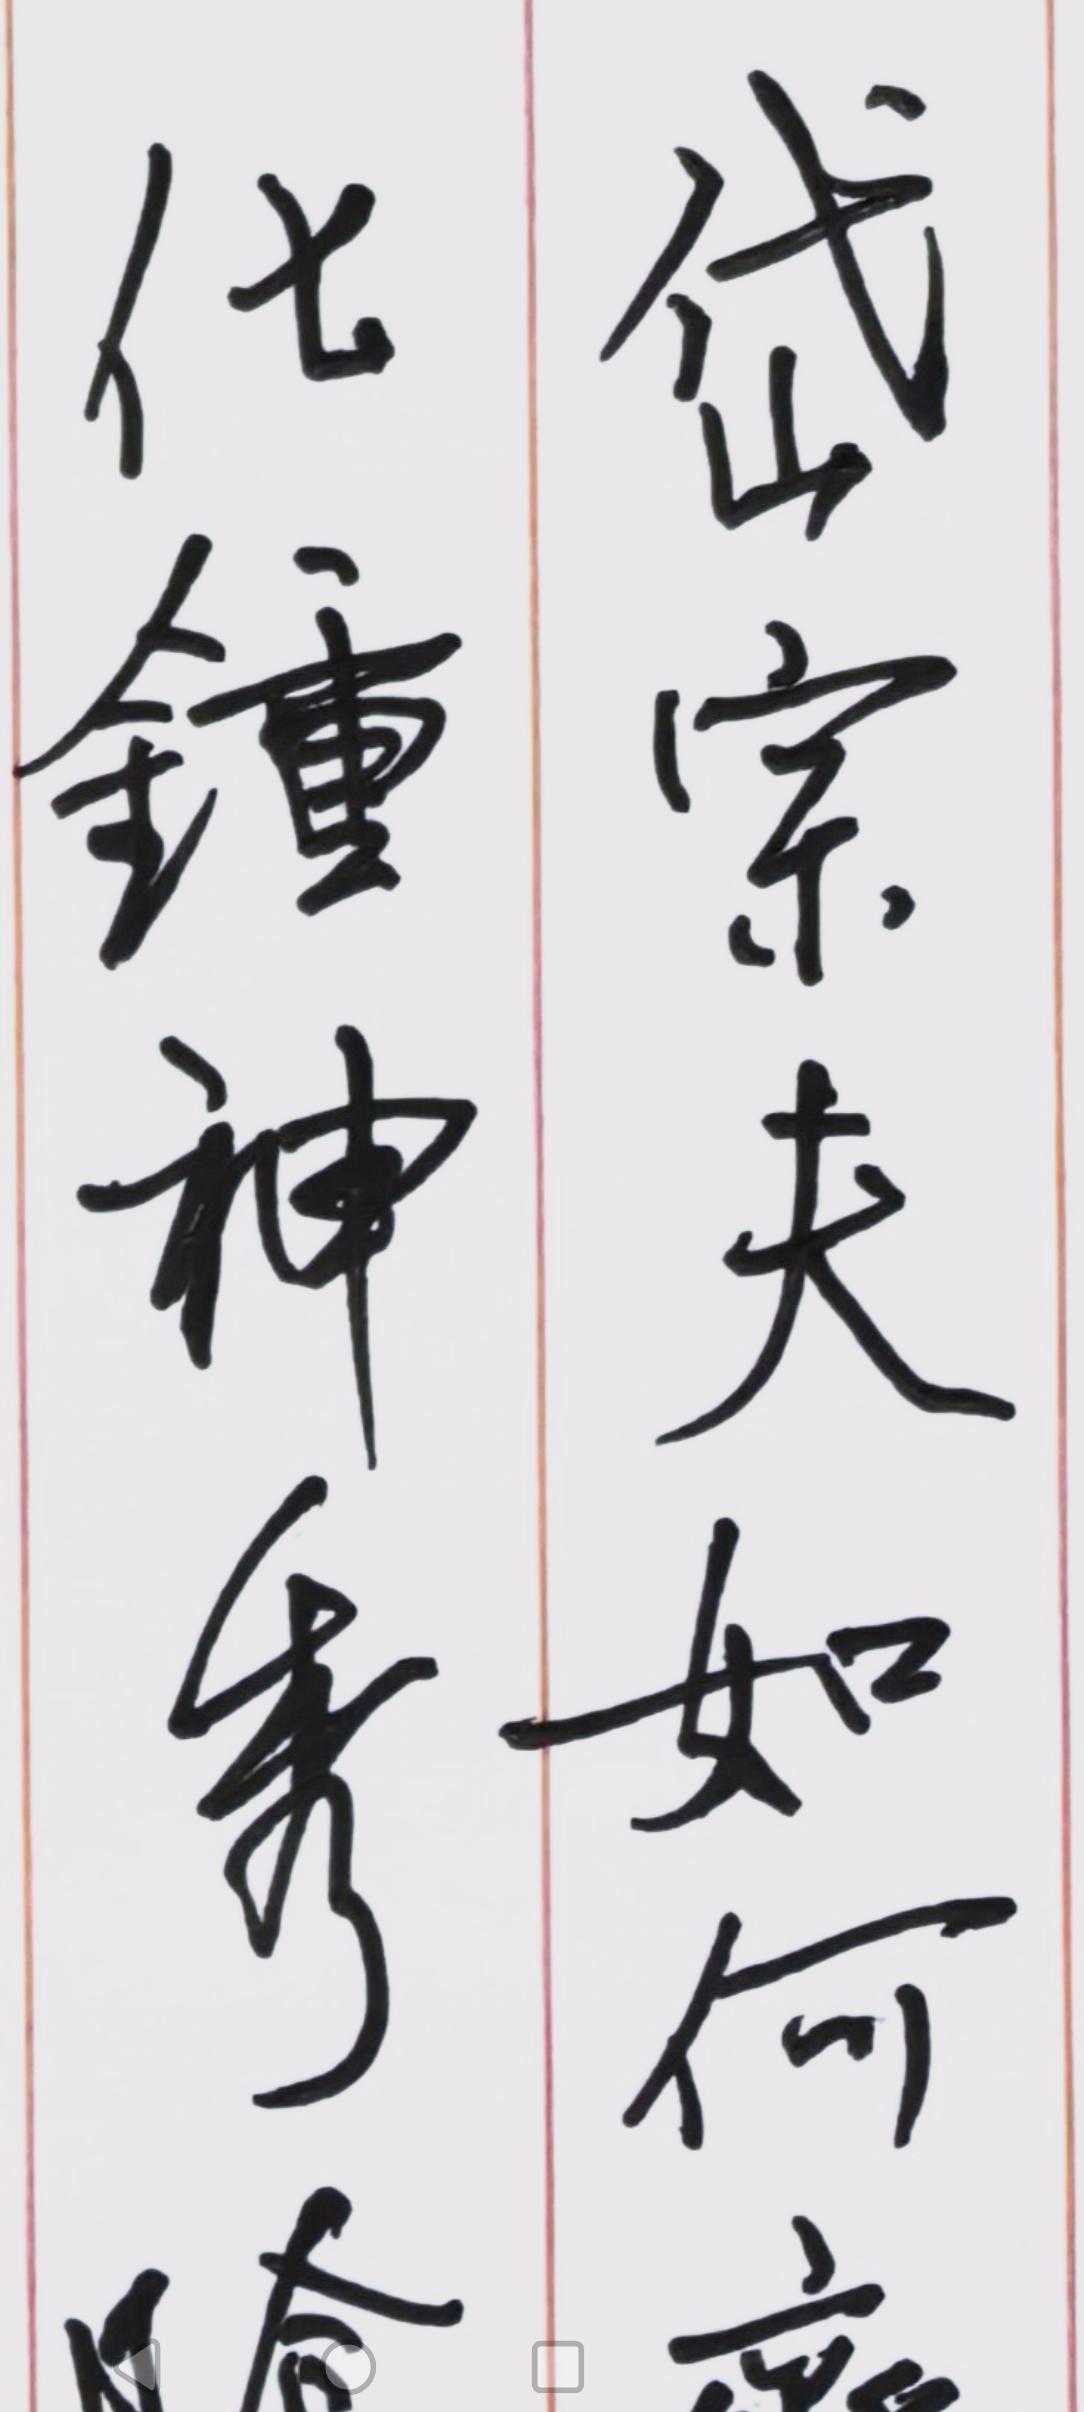 岱宗夫如何齊
化鍾神秀陰